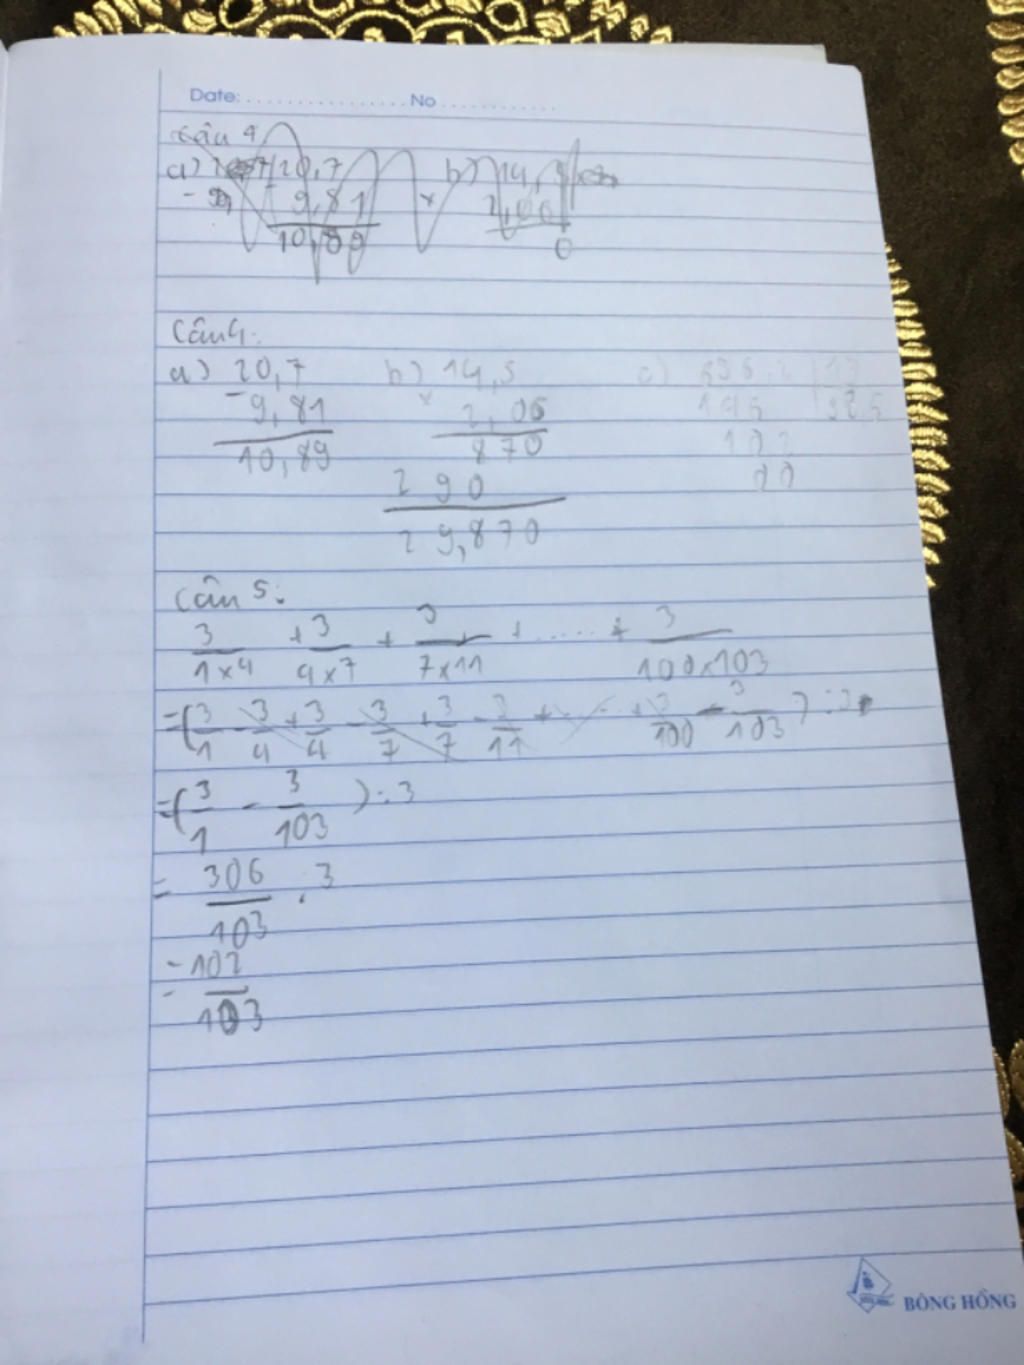 Date: ................ No ............
Câu 4
a) 20,7 b) 14,
- 9,81 × 2,06
10,89 0
Câu 4:
a) 20,7 b) 14,5 c)
- 9,81 × 2,06
10,89 870
2 90
2 9,870
Câu 5:
3/1×4 + 3/4×7 + 3/7×11 + ..... + 3/100×103
=(3/1 - 3/4 + 3/4 - 3/7 + 3/7 - 3/11 + ... + 3/100 - 3/103) : 3
=(3/1 - 3/103) : 3
= 306/103 : 3
= 102/103
BÔNG HỒNG